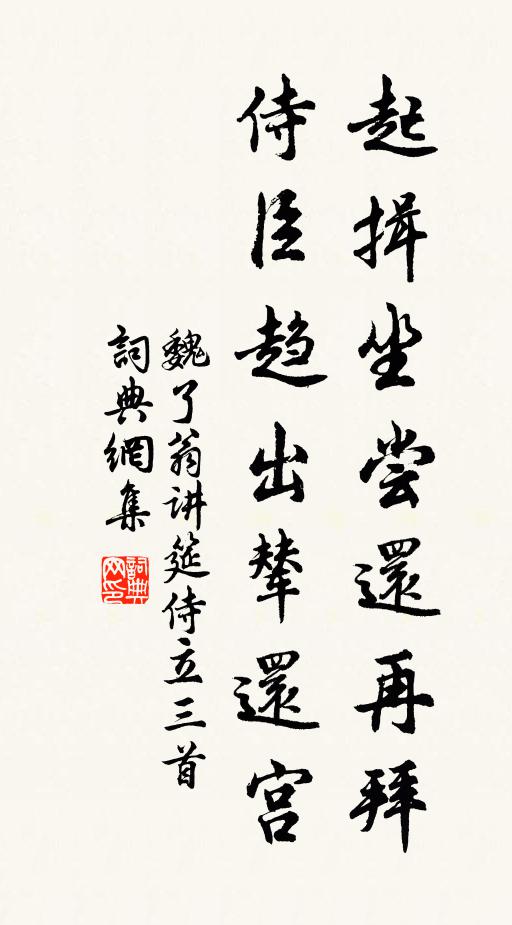 起揖坐尝還再拜
侍臣趋出輦還宫
魏了翁讲筵侍立三首
詞典網集
詞典网印